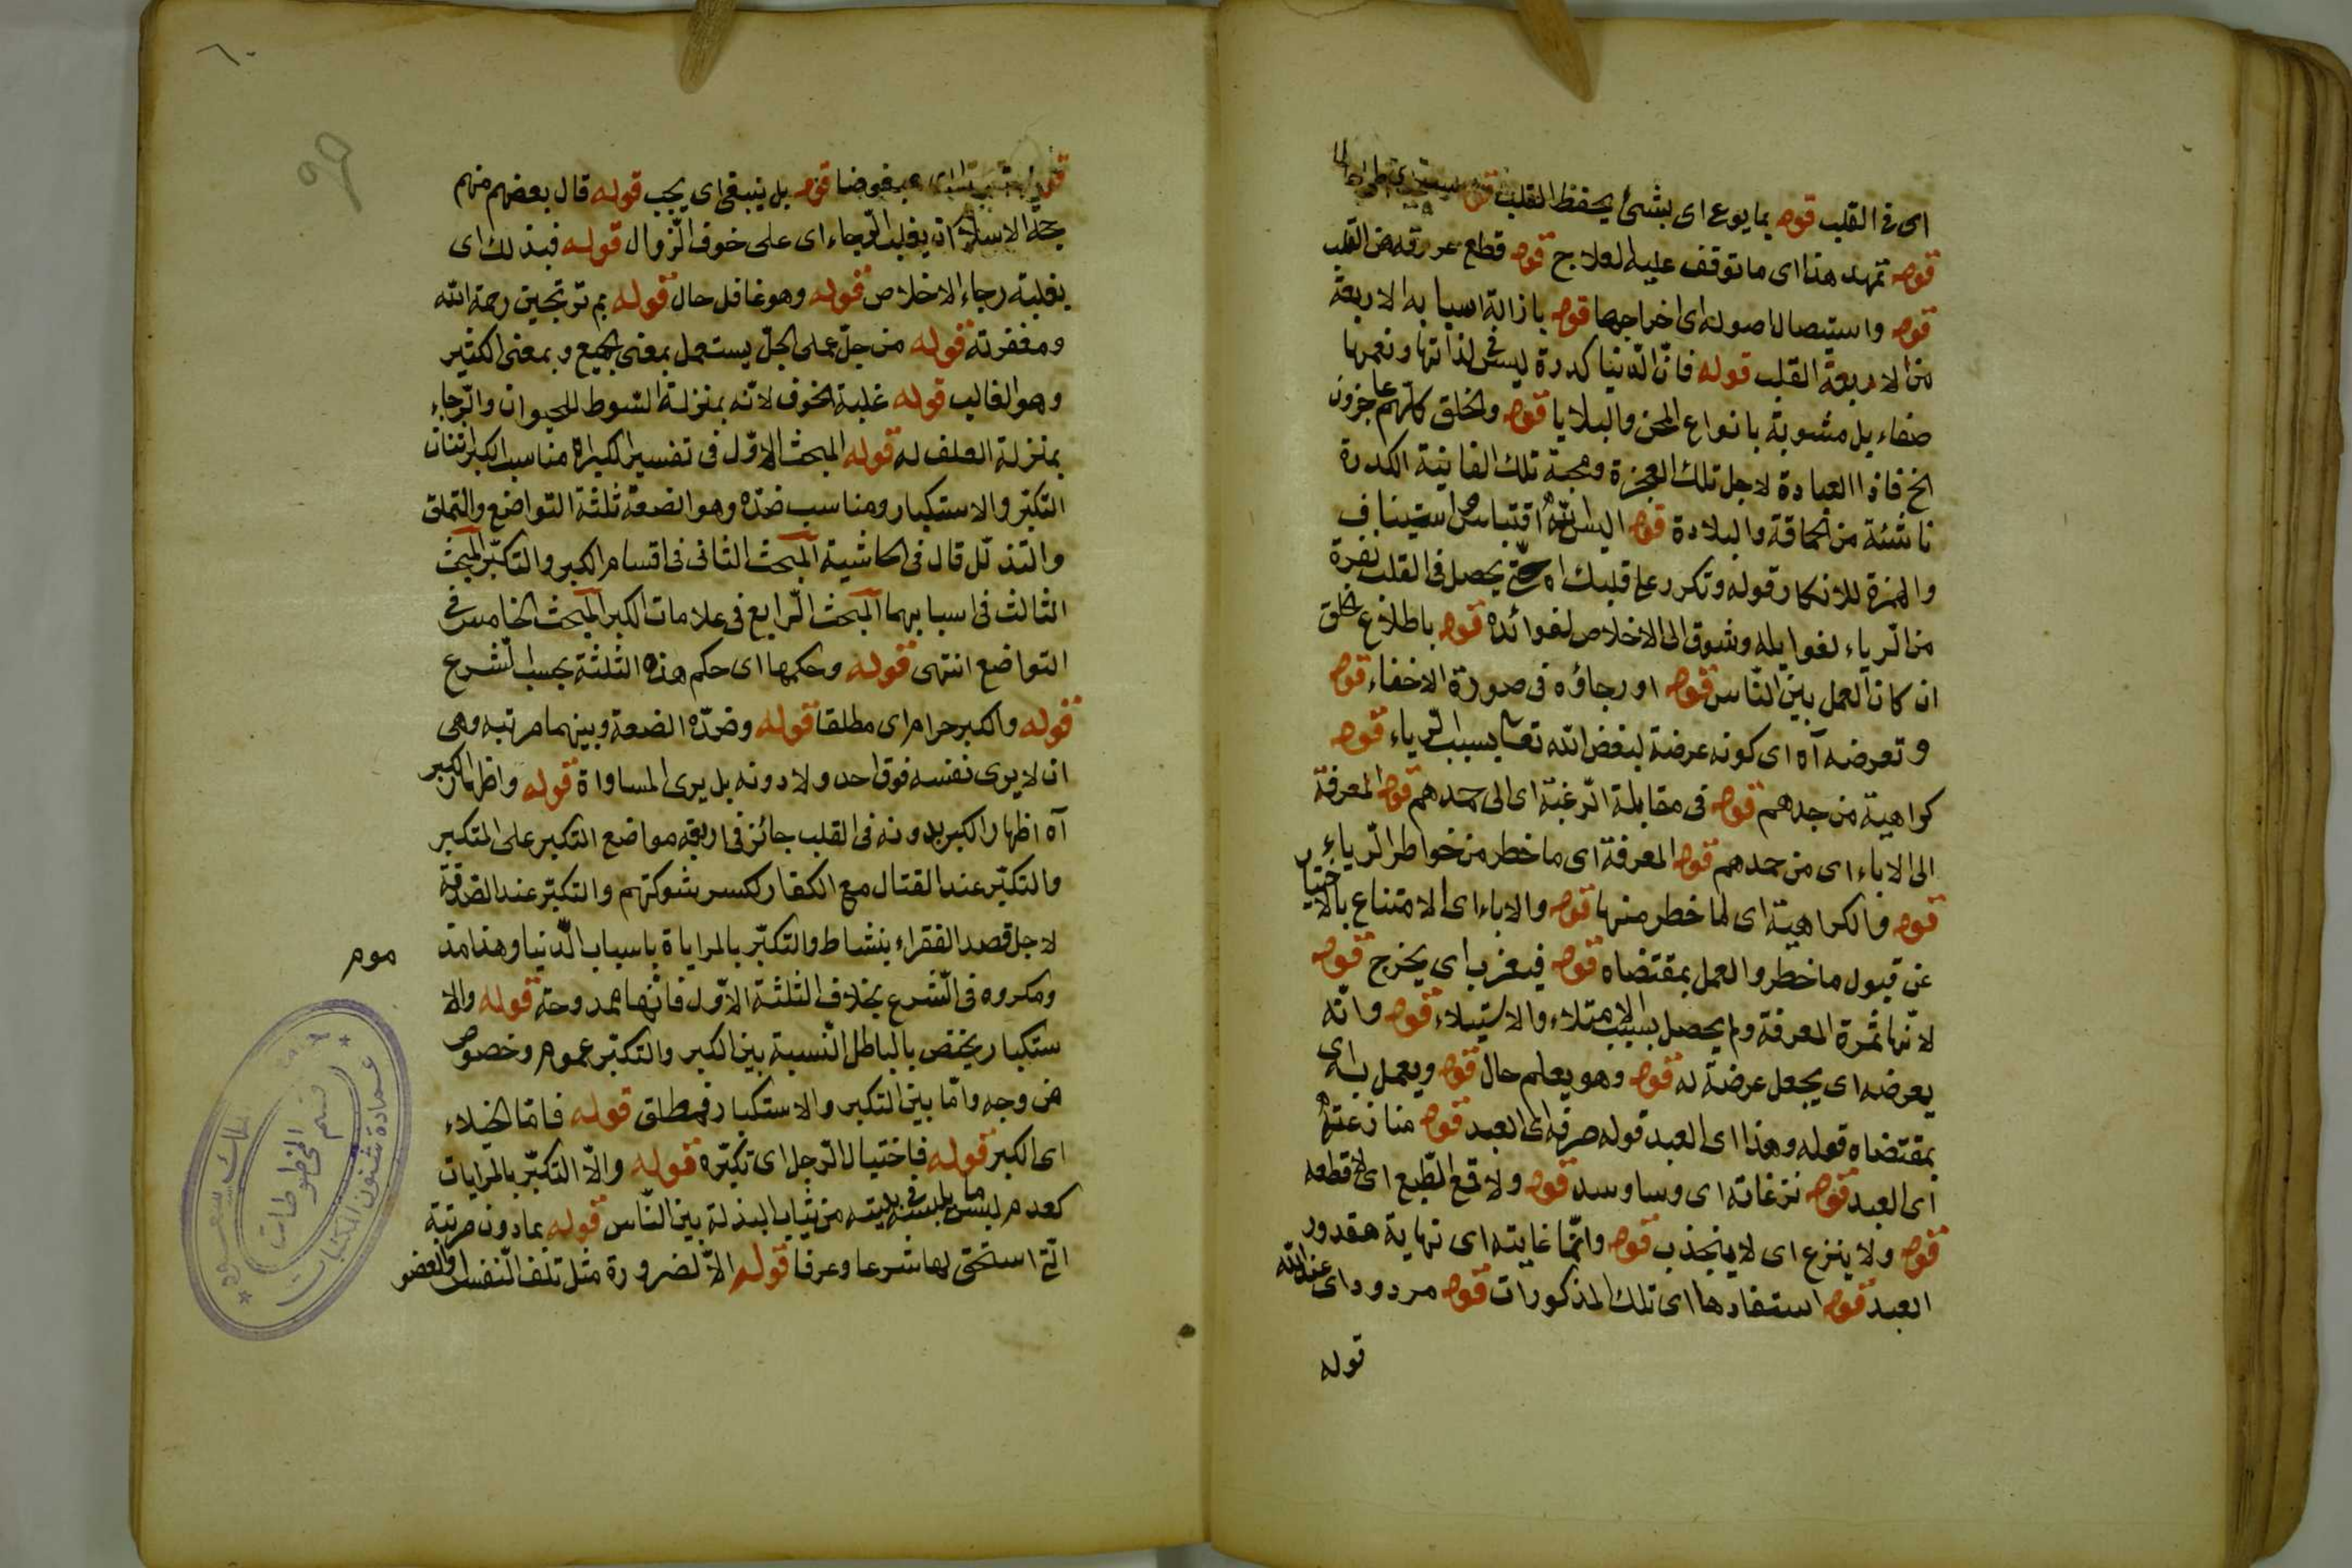 اى فى القلب قوله بما يوع اى بشئ يحفظ القلب قوله
قوله تمهد هذا اى ما توقف عليه العلاج قوله قطع عروقه من القلب
قوله واستيصال اصوله اى اخراجها قوله بازالة اسبابه الاربعة
من الاربعة القلب قوله فانّ الدّنيا كدرة ليس فى لذاتها ونعمها
صفاء بل مشوبة بانواع المحن والبلايا قوله والخلق كلّهم عاجزون
الخ فاذا العبادة لاجل تلك العجزة ومحبة تلك الفانية الكدرة
ناشئة من الحماقة والبلادة قوله اليس اللّه اقتباس استيناف
والهمزة للانكار قوله وتكرر على قلبك اه حتّى يحصل فى القلب نفرة
من الرّياء لغوايله وشوق الى الاخلاص لفوائده قوله باطلاع الخلق
ان كان العمل بين النّاس قوله او رجاؤه فى صورة الاخفاء قوله
وتعرضه آه اى كونه عرضة لبغض اللّه تعا بسبب الرّياء قوله
كراهية من حمدهم قوله فى مقابلة الرّغبة اى الى حمدهم قوله المعرفة
الى الاباء اى من حمدهم قوله المعرفة اى ما خطر من خواطر الرّياء
قوله والكراهية اى لما خطر منها قوله والاباء اى الامتناع بالاختيار
عن قبول ما خطر والعمل بمقتضاه قوله فيعزب اى يخرج قوله
لانّها ثمرة المعرفة ولم يحصل بسبب الامتلاء والاستيلاء قوله وانّه
يعرضه اى يجعل عرضة له قوله وهو يعلم حال قوله ويعمل به اى
بمقتضاه قوله وهذا اى العبد قوله صرفه اى العبد قوله منازعته
اى العبد قوله نزغاته اى وساوسه قوله ولا قمع الطّبع اى لا قطعه
قوله ولا ينزع اى لا ينجذب قوله وانّما غايته اى نهاية مقدور
العبد قوله استفادها اى تلك المذكورات قوله مردود اى عند اللّه
قوله
٦٠
قوله بل ينبغى اى يجب قوله قال بعضهم منهم
حجة الاسلام ان يغلب الرّجاء اى على خوف الزّوال قوله فبذلك اى
بغلبة رجاء الاخلاص قوله وهو غافل حال قوله بم ترتجين رحمة اللّه
ومغفرته قوله من جلّ عملى الجلّ يستعمل بمعنى الجميع وبمعنى الكثير
وهو الغالب قوله غلبة الخوف لانّه بمنزلة السّوط للحيوان والرّجاء
بمنزلة العلف له قوله المبحث الاوّل فى تفسير الكبر اه مناسب الكبر اثنان
التكبّر والاستكبار ومناسب ضدّه وهو الضعة ثلثة التواضع والتملق
والتذلّل قال فى الحاشية المبحث الثانى فى اقسام الكبر والتكبّر المبحث
الثالث فى اسبابهما المبحث الرّابع فى علامات الكبر المبحث الخامس فى
التواضع انتهى قوله وحكمها اى حكم هذه الثلثة بحسب الشّرع
قوله والكبر حرام اى مطلقا قوله وضدّه الضعة وبينهما مرتبه وهى
ان لا يرى نفسه فوق احد ولا دونه بل يرى المساواة قوله واظهار الكبر
آه اظهار الكبر بدونه فى القلب جائز فى اربعة مواضع التكبر على المتكبر
والتكبّر عند القتال مع الكفار لكسر شوكتهم والتكبّر عند الصّدقة
لاجل قصد الفقراء بنشاط والتكبّر بالمراياة باسباب الدّنيا وهذا مذ
موم
ومكروه فى الشّرع بخلاف الثلثة الاوّل فانّها ممدوحة قوله والا
ستكبار يختص بالباطل النّسبة بين الكبر والتكبّر عموم وخصوص
من وجه وامّا بين التكبر والاستكبار فمطلق قوله فامّا الخيلاء
اى الكبر قوله فاختيال الرّجل اى تكبّره قوله والاّ التكبّر بالمرايات
كعدم لبس ما يلبسه فى بيته من ثياب البذلة بين النّاس قوله بما دون مرتبة
الّتى استحق بها شرعا وعرفا قوله الاّ لضرورة مثل تلف النّفس او العضو
عمادة شئون المكتبات
قسم المخطوطات